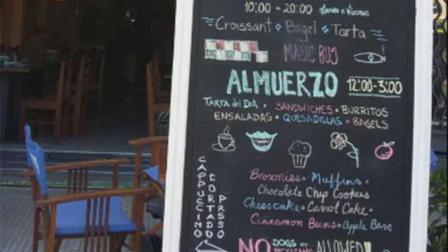 10:00 - 20:00 Lunes a Viernes
Croissant Bagel Tarta
MAGIC BUS
ALMUERZO 12:00-3:00
TARTA del DIA • SANDWICHES • BURRITOS
ENSALADAS • QUESADILLAS • BAGELS
Brownies • Muffins •
Chocolate Chip Cookies
Cheesecake • Carrot Cake •
Cinnamon Buns • Apple Bars
CAPPUCCINO
CORTADO
NO DOGS ALLOWED